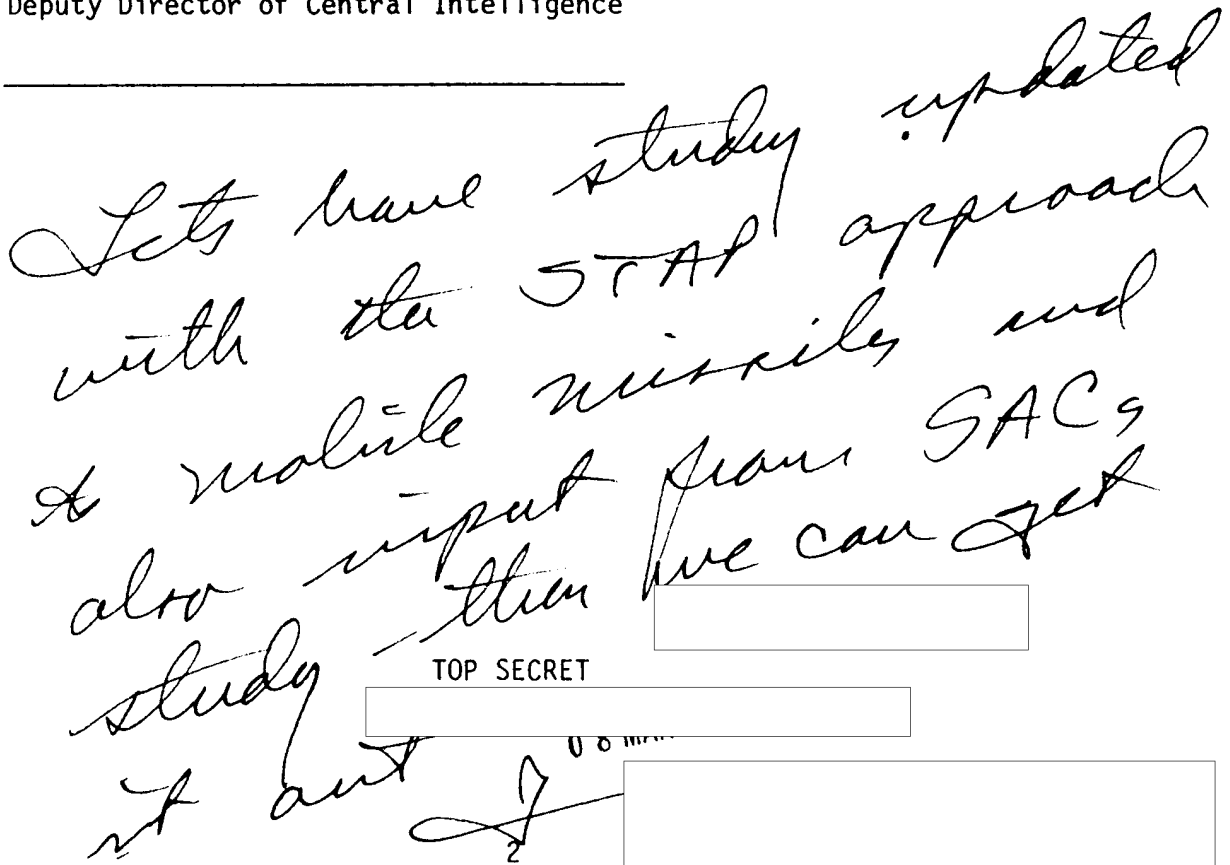 Deputy Director of Central Intelligence
Lets have study updated
with the STAP approach
to mobile missiles and
also input from SACs
study – then we can get
TOP SECRET
it out
08 MAR
2